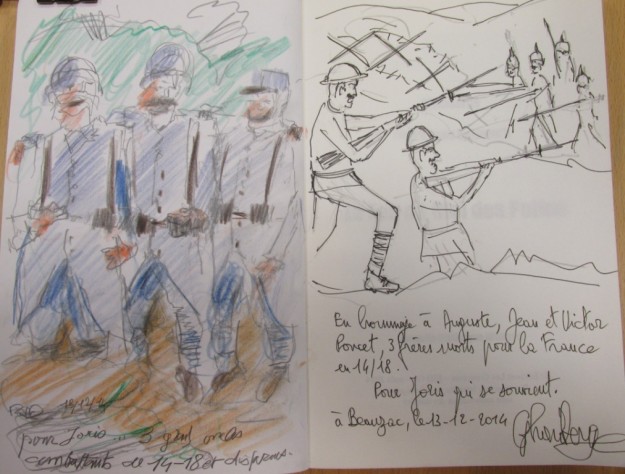 pour Joris... 3 grd oncles
combattants de 14-18 et disparus.
En hommage à Auguste, Jean et Victor
Poncet, 3 frères morts pour la France
en 14/18.
Pour Joris qui se souvient.
à Beauzac, le 13-12-2014